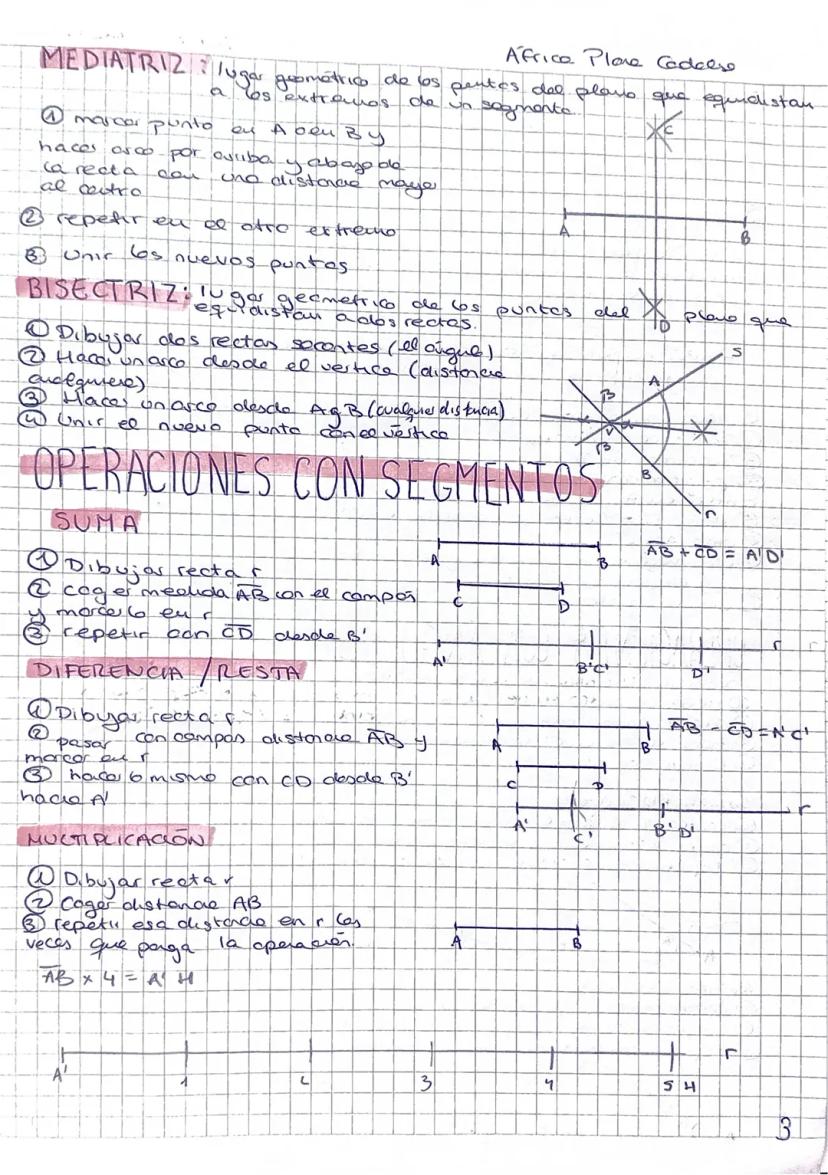 África Plana Cadelso
MEDIATRIZ: lugar geométrico de los puntos del plano que equidistan
a los extremos de un segmento.
① marcar punto en A o en B y
haces arco por arriba y abajo de
la recta con una distancia mayor
al centro
② repetir en el otro extremo
③ Unir los nuevos puntos
C
A
B
D
BISECTRIZ: lugar geométrico de los puntos del plano que
equidistan a dos rectas.
① Dibujar dos rectas secantes (el ángulo)
② Hacer un arco desde el vértice (distancia
cualquiera)
③ Hacer un arco desde A y B (cualquier distancia)
④ Unir el nuevo punto con el vértice
S
A
β
α
α
V
β
B
r
OPERACIONES CON SEGMENTOS
SUMA
① Dibujar recta r
② coger medida AB con el compás
y marcarlo en r
③ repetir con CD desde B'
A
B
AB + CD = A'D'
C
D
A'
B'C'
D'
r
DIFERENCIA / RESTA
① Dibujar recta r
② pasar con compás distancia AB y
marcar en r
③ hacer lo mismo con CD desde B'
hacia A'
A
B
AB - CD = A'C'
C
D
A'
C'
B' D'
r
MULTIPLICACIÓN
① Dibujar recta r
② Coger distancia AB
③ repetir esa distancia en r las
veces que ponga la operación.
A
B
AB x 4 = A' H
A'
1
2
3
4
5 H
r
3